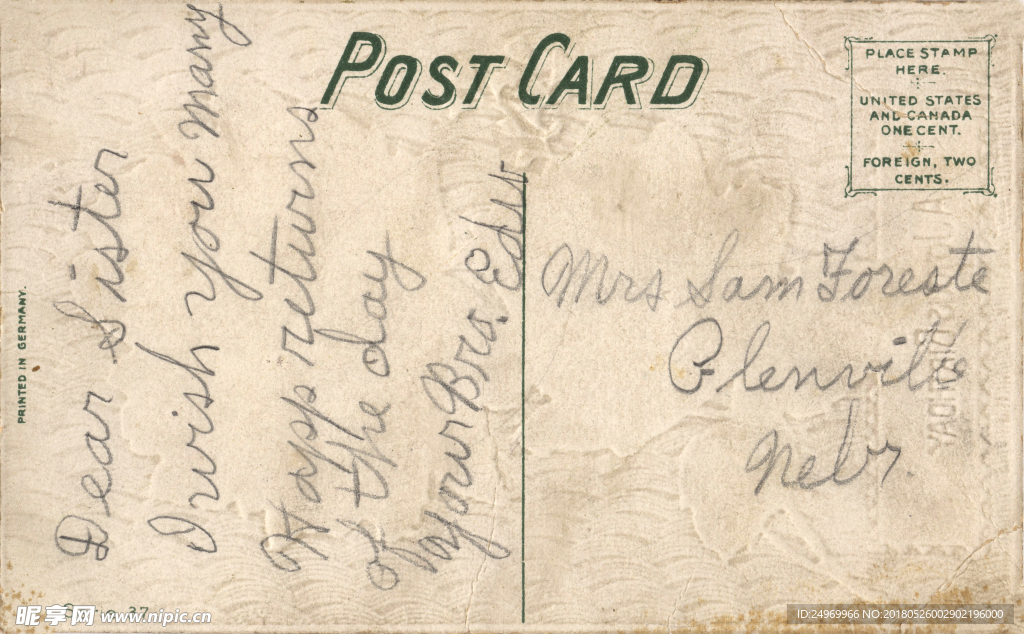 POST CARD
PLACE STAMP
HERE.
UNITED STATES
AND CANADA
ONE CENT.
FOREIGN, TWO
CENTS.
PRINTED IN GERMANY.
Dear Sister
I wish you many
Happ returns
of the day
Your Bro. Ed
Mrs Sam Foreste
Glenville
Nebr.
37
昵享网 www.nipic.cn
ID:24969966 NO:20180526002902196000